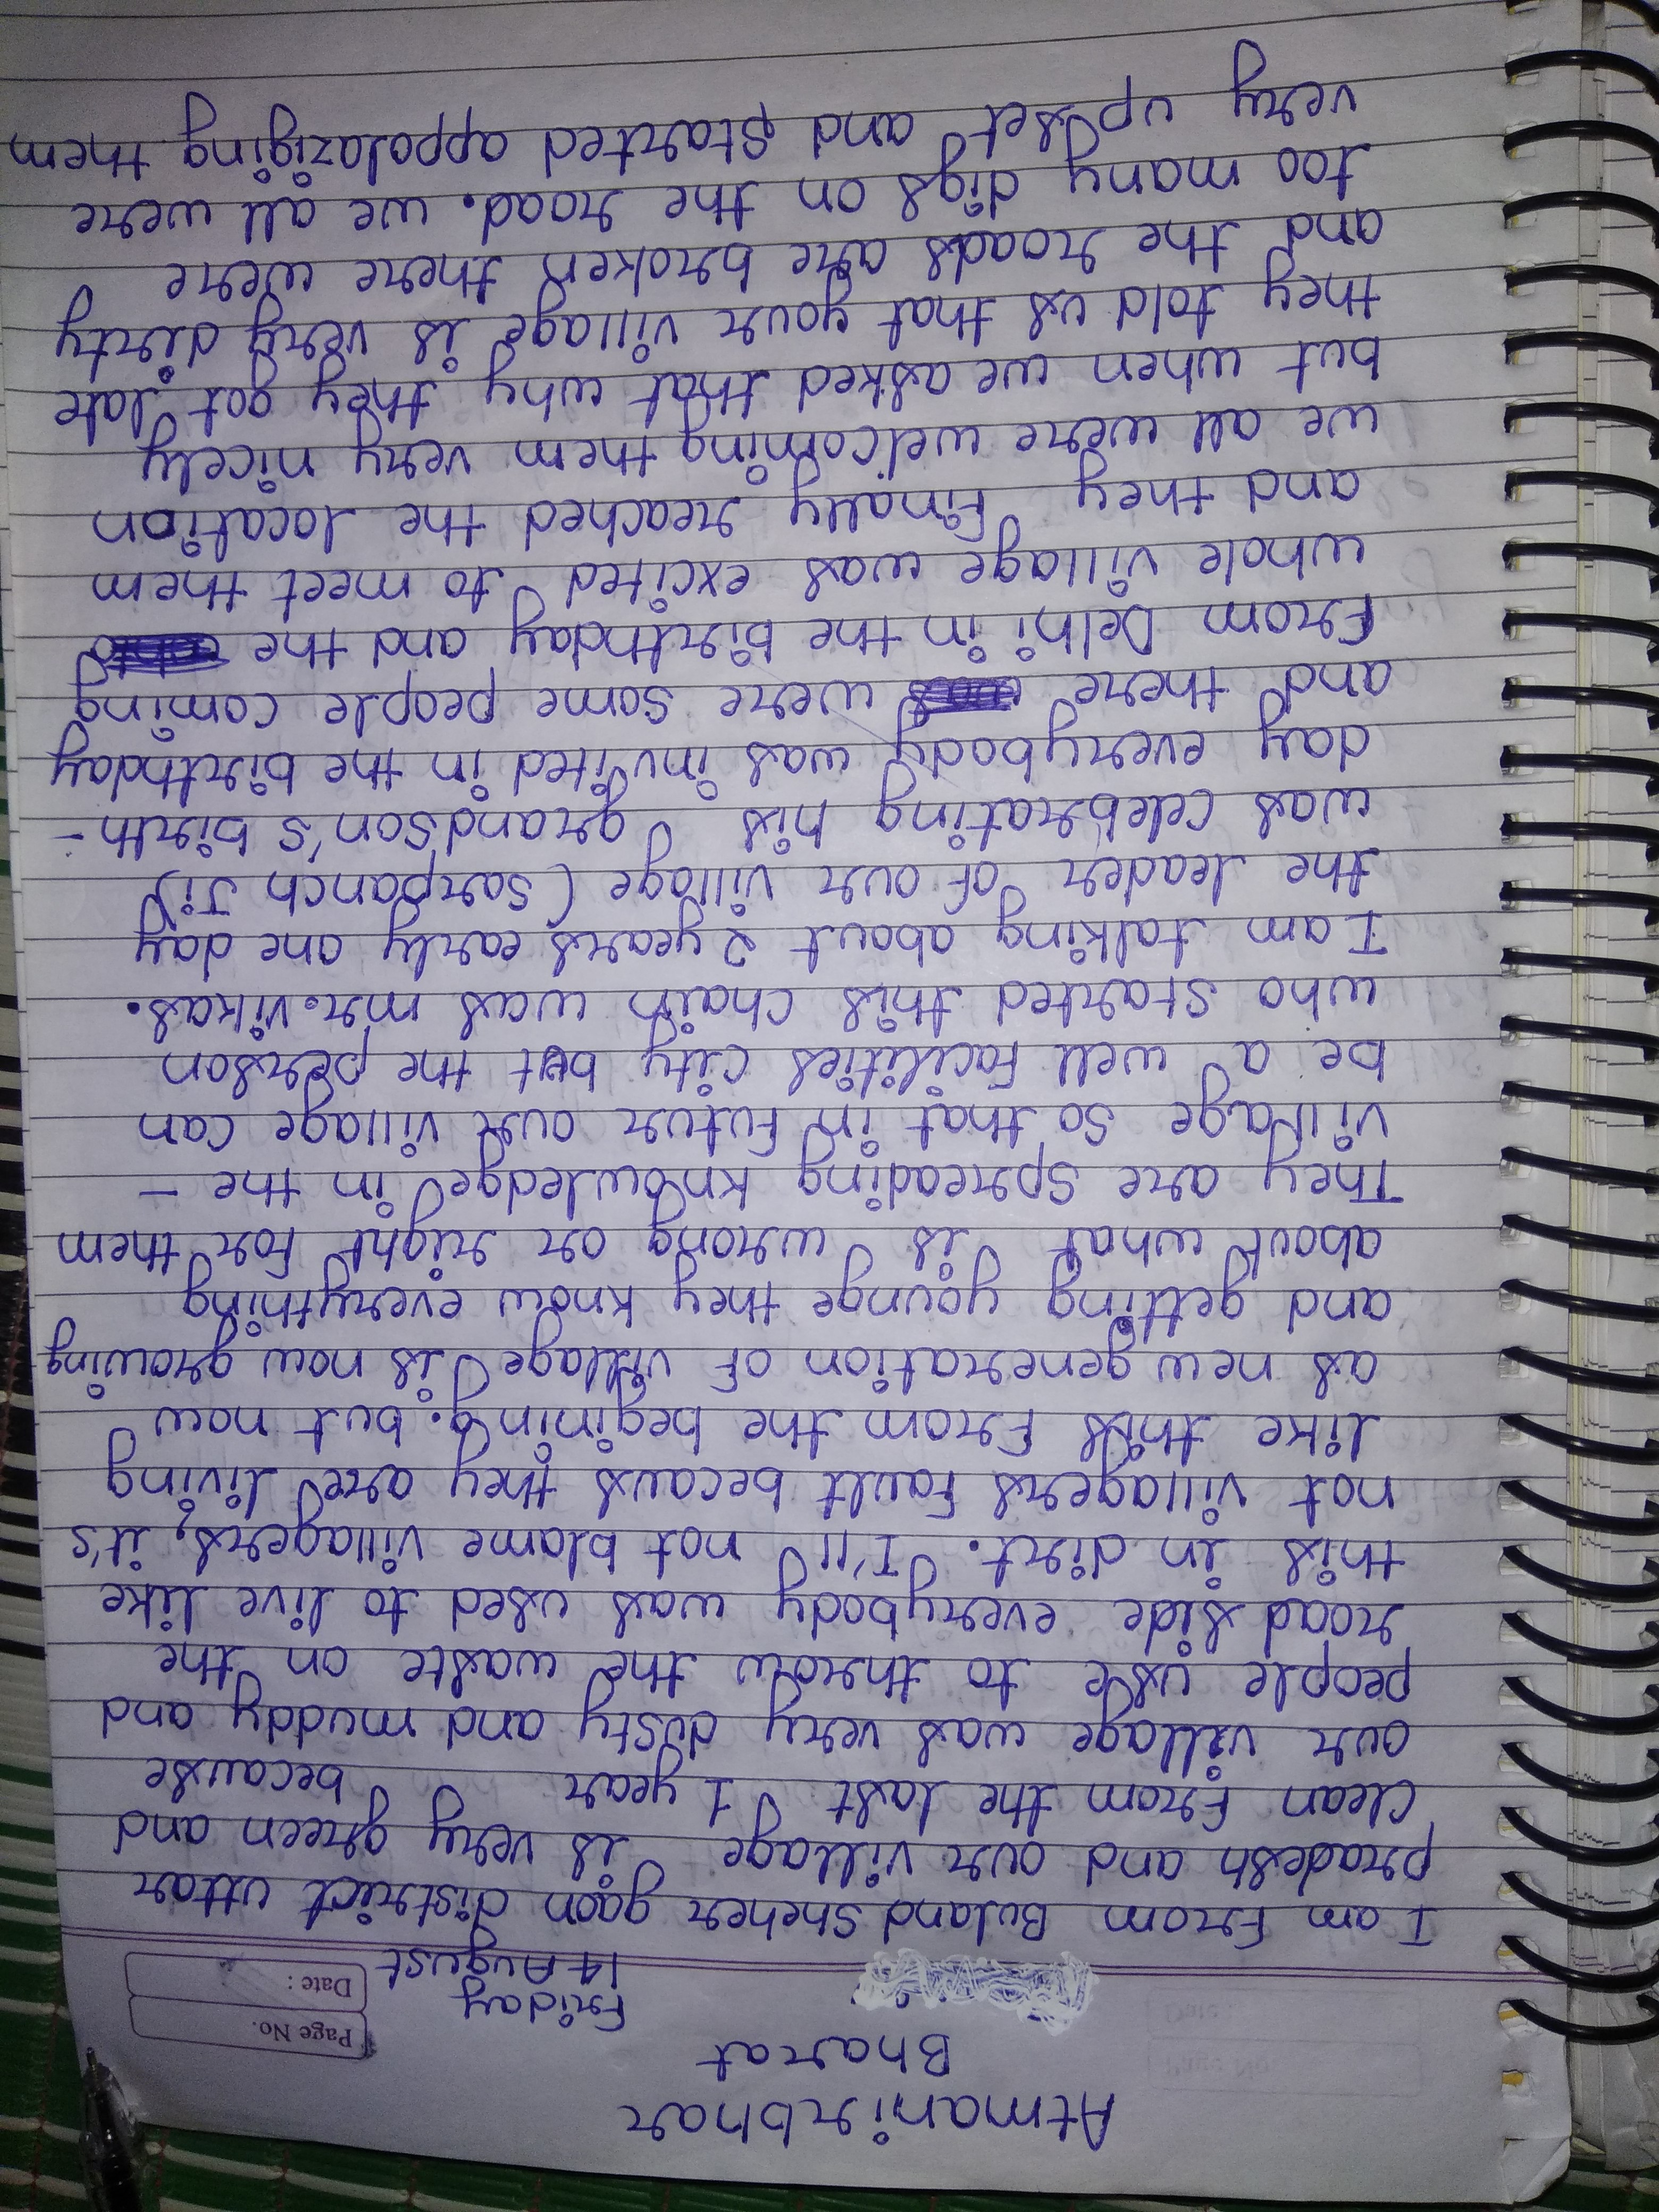 Atmanirbhar
Bharat
Page No.
Date :
Friday
14 August
I am From Buland sheher gaon district uttar
pradesh and our village is very green and
clean From the last 1 year because
our village was very dusty and muddy and
people use to throw the waste on the
road side everybody was used to live like
this in dirt. I'll not blame villagers, it's
not villagers Fault becaus they are living
like this From the begining. but now
as new generation of village is now growing
and getting younge they know everything
about what is wrong or right For them
They are spreading knowledge in the -
village so that in Futur our village can
be a well Facilities city but the person
who started this chain was mr. vikas.
I am talking about 2 years early one day
the leader of our village (sarpanch Ji)
was celebrating his grandson's birth-
day everybody was invited in the birthday
and there were some people coming
From Delhi in the birthday and the
whole village was excited to meet them
and they Finally reached the location
we all were welcoming them very nicely
but when we asked that why they got late
they told us that your village is very dirty
and the roads are broken there were
too many digs on the road. we all were
very upset and started appolaziging them